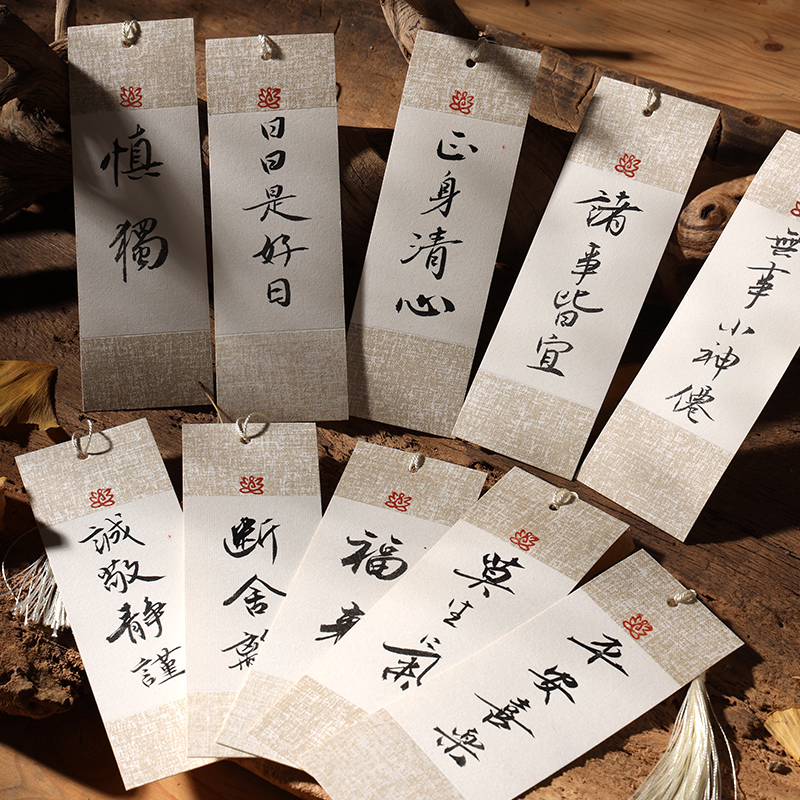 慎獨
日日是好日
正身清心
諸事皆宜
無事小神僊
誠敬静謹
断舍
福
莫生氣
平安喜樂